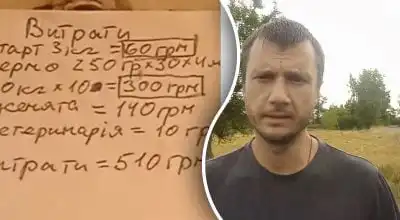 Витрати
тарт 3,кг = 60 грн
ерно 250 гр×30×4м
0кг × 10 = 300 грн
= 140 грн
етеринарія = 10 гр
итрати = 510 грн